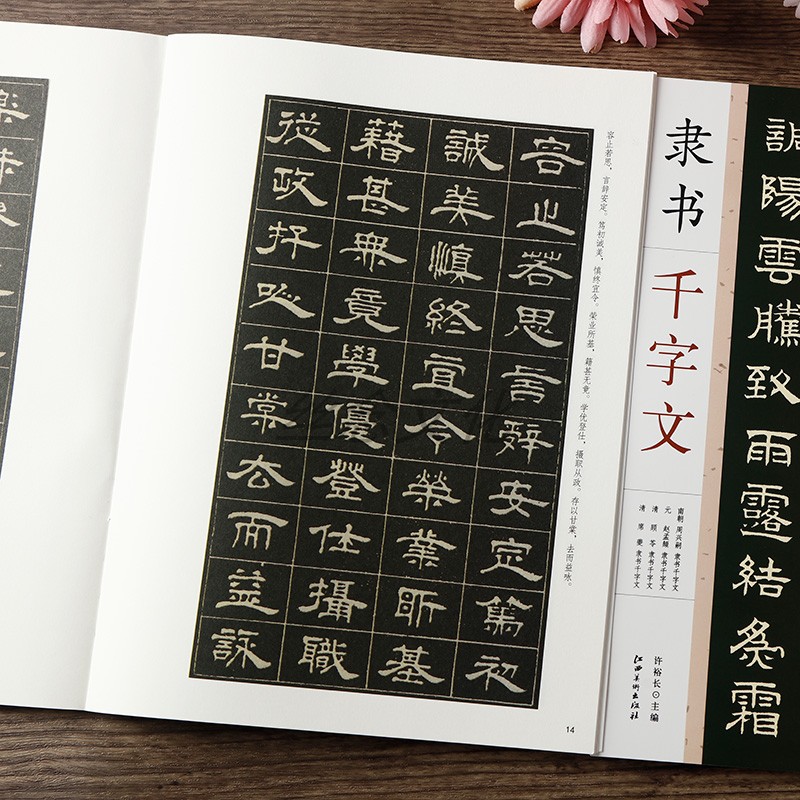 容止若思言辤安定篤初
誠美慎終宜令榮業所基
藉甚無竟學優登仕攝職
從政存以甘棠去而益詠
容止若思，言辞安定。笃初诚美，慎终宜令。荣业所基，籍甚无竟。学优登仕，摄职从政。存以甘棠，去而益咏。
14
隶书
千字文
南朝 周兴嗣 隶书千字文
元 赵孟頫 隶书千字文
清 顾苓 隶书千字文
清 席夔 隶书千字文
许裕长⊙主编
江西美术出版社
調陽雲騰致雨露結為霜